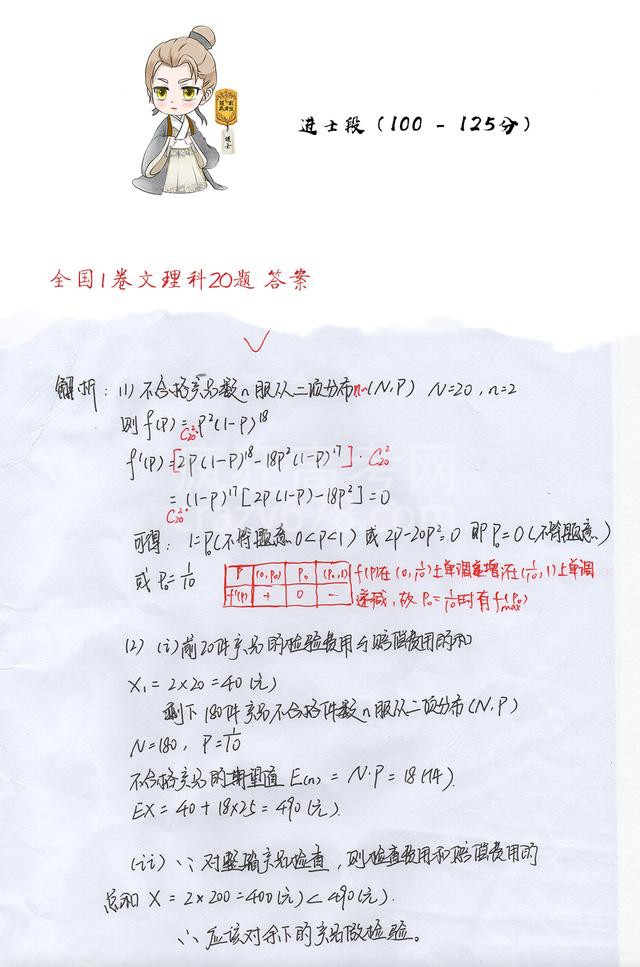 进士段（100 - 125分）
进士
全国1卷文理科20题 答案
解析：(1) 不合格产品数n服从二项分布n~(N,P) N=20, n=2
则f(P)=C₂₀²P²(1-P)¹⁸
f'(P)=[2P(1-P)¹⁸-18P²(1-P)¹⁷]·C₂₀²
=C₂₀²·(1-P)¹⁷[2P(1-P)-18P²]=0
可得：1=P₀(不符题意 0<P<1) 或 2P-20P²=0 即P₀=0(不符题意)
或 P₀=1/10
P (0,P₀) P₀ (P₀,1) f(P)在(0,1/10)上单调递增,在(1/10,1)上单调
f'(P) + 0 - 递减,故P₀=1/10时有f(P₀)max
(2) (i) 前20件产品的检验费用与赔偿费用的和
X₁=2×20=40(元)
剩下180件产品不合格件数n服从二项分布(N,P)
N=180, P=1/10
不合格产品的期望值 E(n)=N·P=18(件).
EX=40+18×25=490(元)
(ii) ∵对整箱产品检查，则检查费用和赔偿费用的
总和 X=2×200=400(元)<490(元).
∴应该对余下的产品做检验。